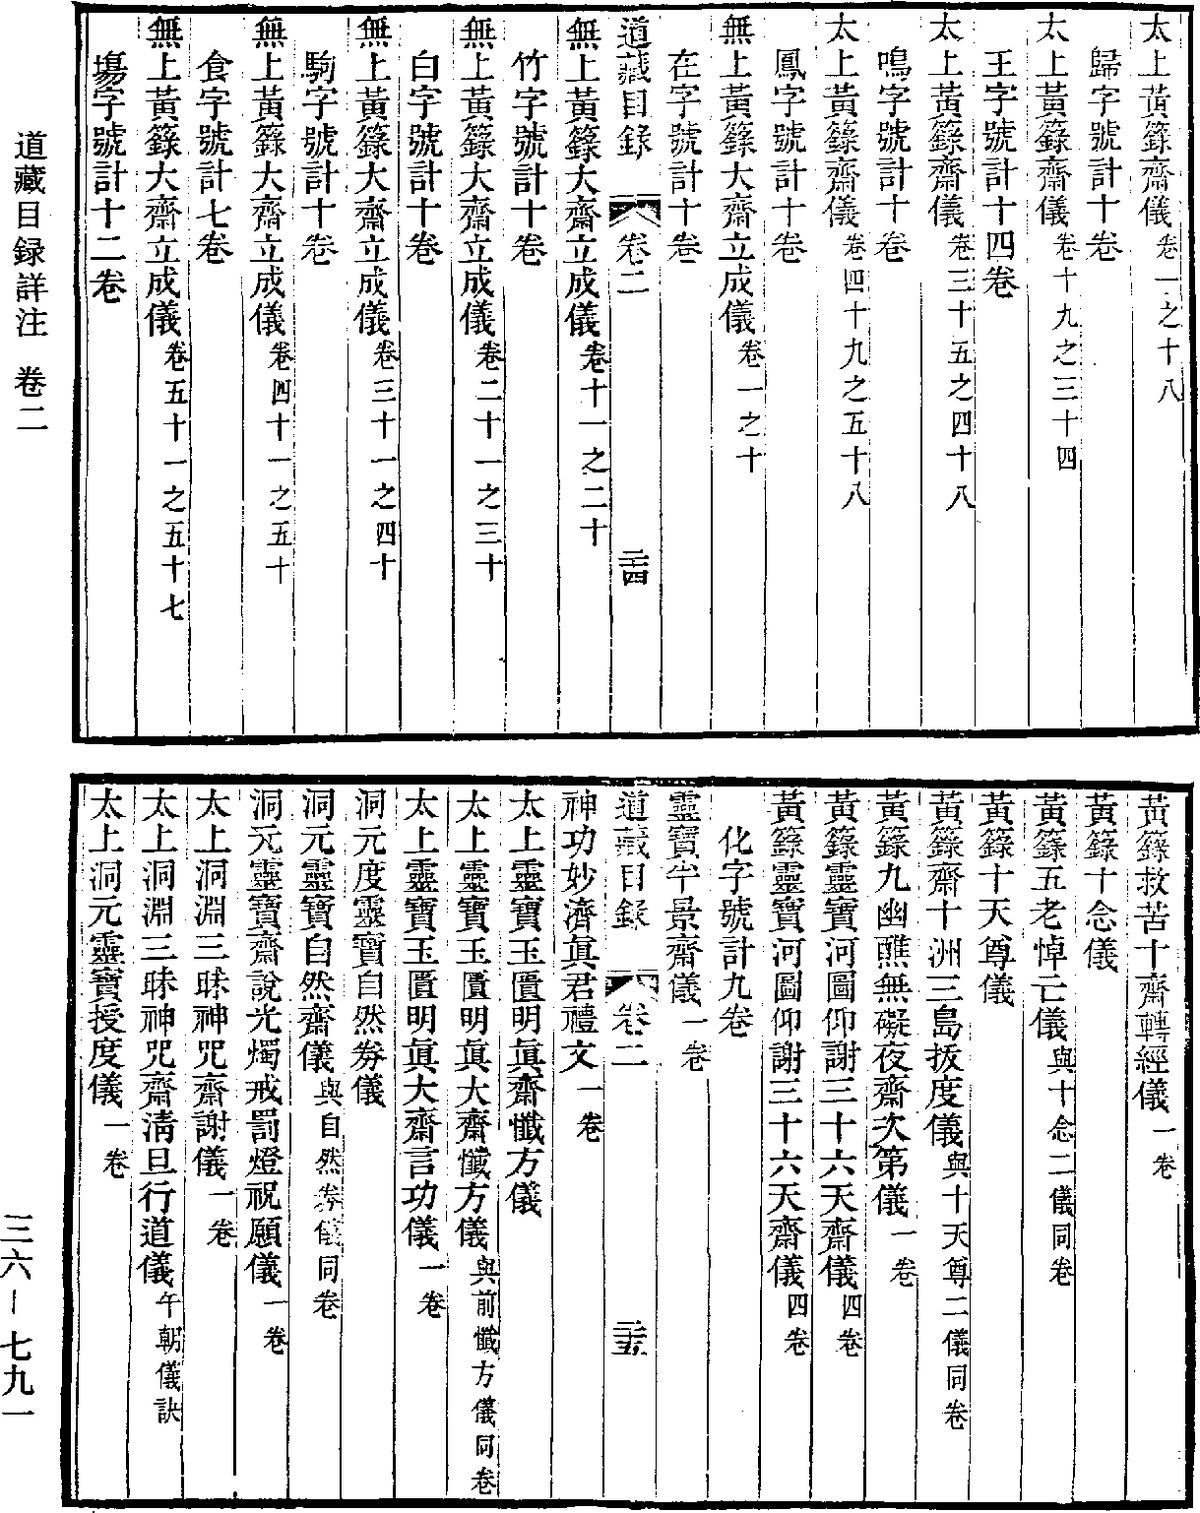 太上黃籙齋儀卷一之十八
歸字號計十卷
太上黃籙齋儀卷十九之三十四
王字號計十四卷
太上黃籙齋儀卷三十五之四十八
鳴字號計十卷
太上黃籙齋儀卷四十九之五十八
鳳字號計十卷
無上黃籙大齋立成儀卷一之十
在字號計十卷
道藏目錄 卷二 二十四
無上黃籙大齋立成儀卷十一之二十
竹字號計十卷
無上黃籙大齋立成儀卷二十一之三十
白字號計十卷
無上黃籙大齋立成儀卷三十一之四十
駒字號計十卷
無上黃籙大齋立成儀卷四十一之五十
食字號計七卷
無上黃籙大齋立成儀卷五十一之五十七
場字號計十二卷
黃籙救苦十齋轉經儀一卷
黃籙十念儀
黃籙五老悼亡儀與十念二儀同卷
黃籙十天尊儀
黃籙齋十洲三島拔度儀與十天尊二儀同卷
黃籙九幽醮無礙夜齋次第儀一卷
黃籙靈寶河圖仰謝三十六天齋儀四卷
黃籙靈寶河圖仰謝三十六天齋儀四卷
化字號計九卷
靈寶半景齋儀一卷
道藏目錄 卷二 二十五
神功妙濟眞君禮文一卷
太上靈寶玉匱明眞齋懺方儀
太上靈寶玉匱明眞大齋懺方儀與前懺方儀同卷
太上靈寶玉匱明眞大齋言功儀一卷
洞元度靈寶自然券儀
洞元靈寶自然齋儀與自然券儀同卷
洞元靈寶齋說光燭戒罰燈祝願儀一卷
太上洞淵三昧神咒齋謝儀一卷
太上洞淵三昧神咒齋淸旦行道儀午朝儀訣
太上洞元靈寶授度儀一卷
道藏目録詳注 卷二
三六—七九一